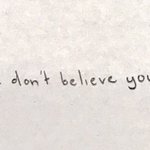 don't believe you